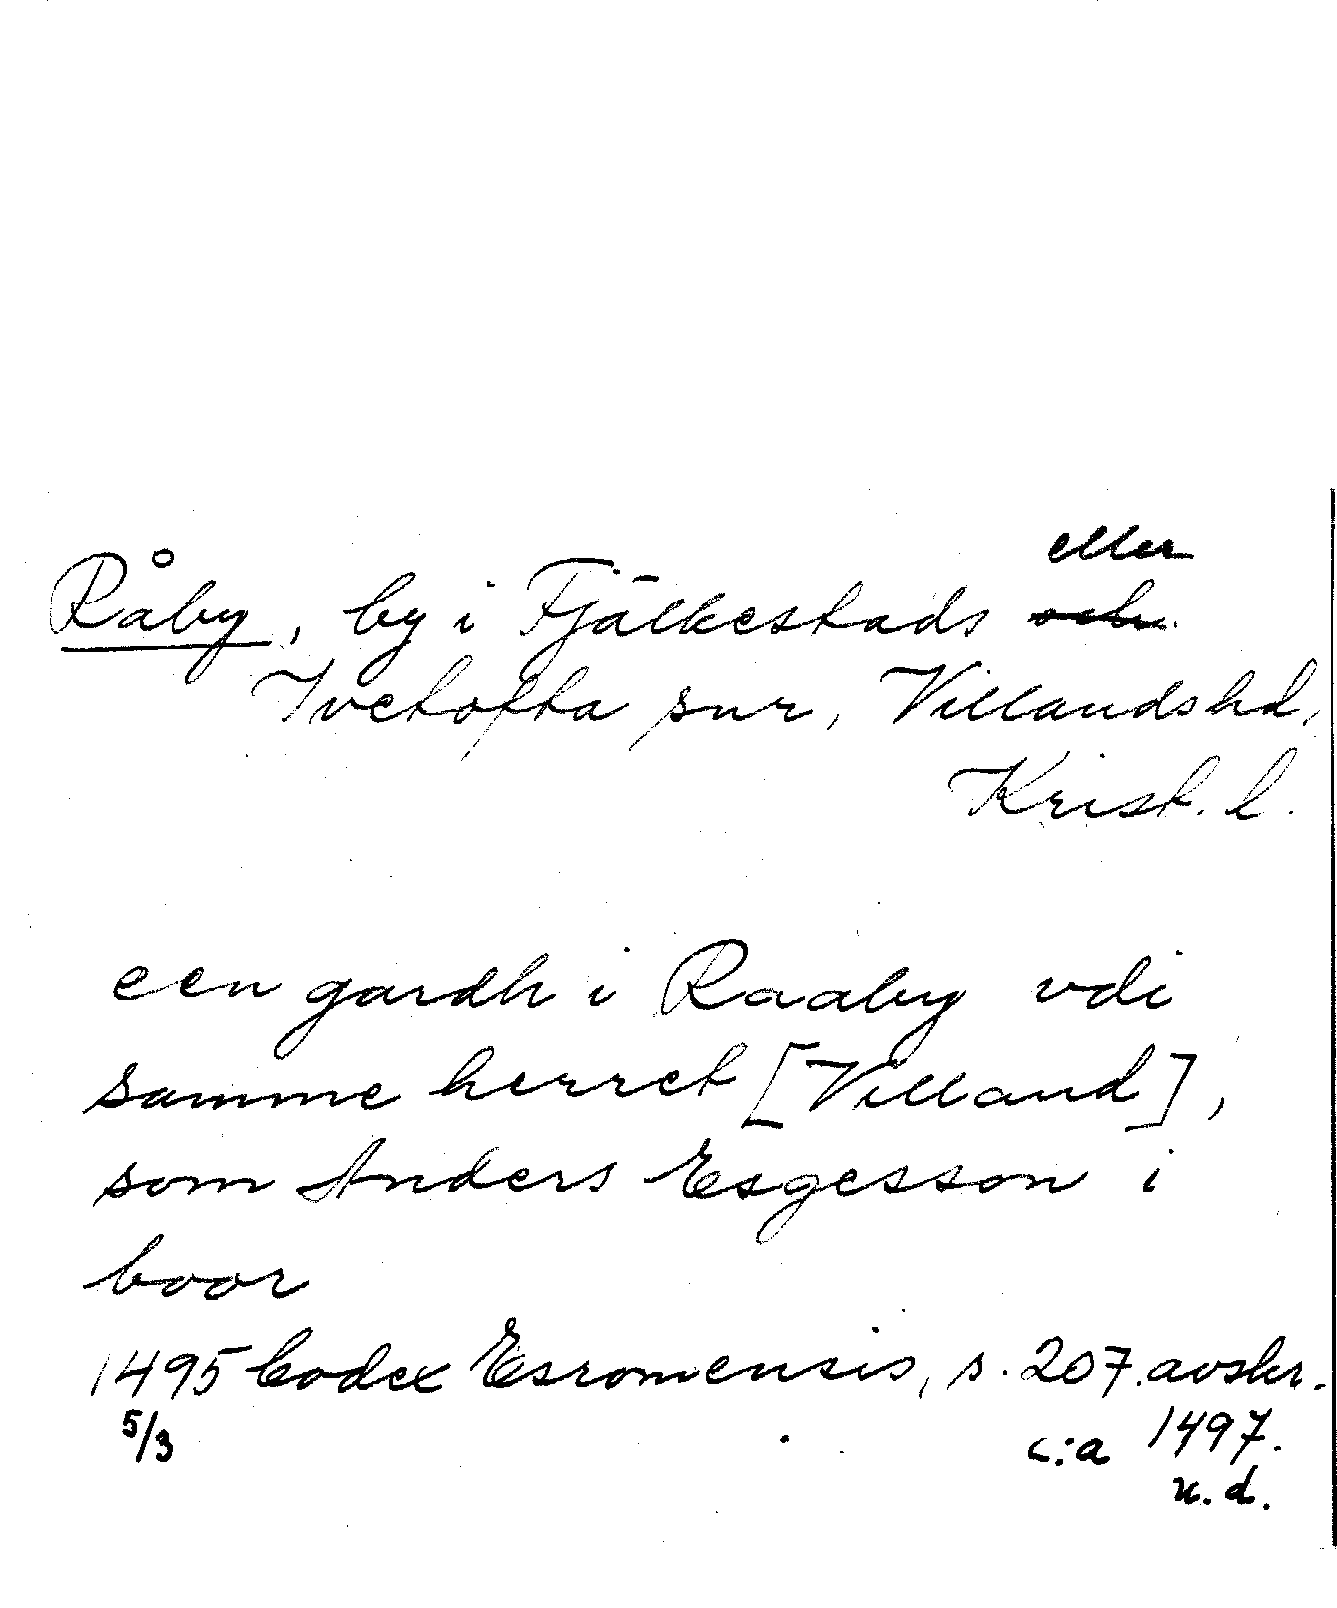 Råby, by i Fjälkestads eller och
Ivetofta snr, Villands hd,
Krist. l.
een gardh i Raaby vdi
samme herret [Villand],
som Anders Esgesson i
boor
1495 Codex Esromensis, s. 207. avskr.
5/3 c:a 1497.
u. d.